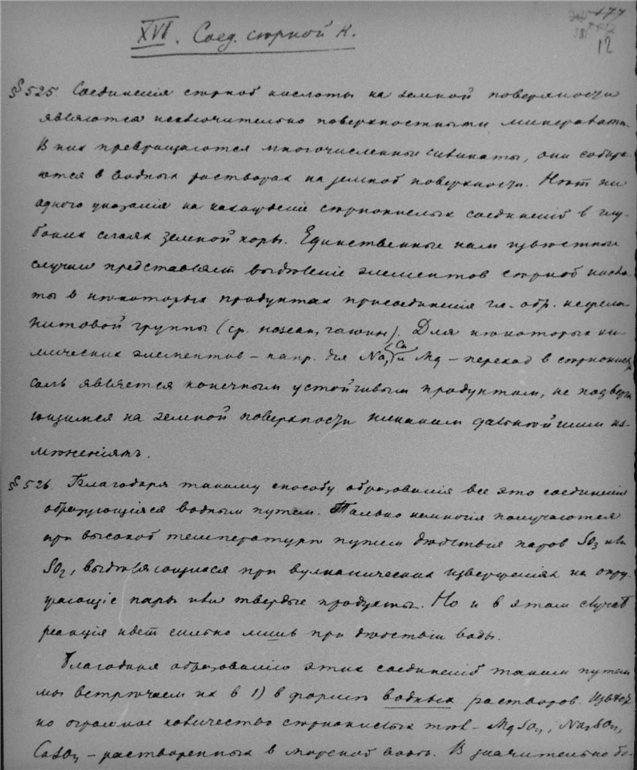 177
12
XVI. Соед. сѣрной к.
§ 525. Соединенія сѣрной кислоты на земной поверхности
являются исключительно поверхностными минералами.
В них превращаются многочисленные силикаты, они собира-
ются в водных растворах на земной поверхности. Нѣт ни
одного указанія на нахожденіе сѣрнокислых соединеній в глу-
боких слоях земной коры. Единственные нам извѣстные
случаи представляет выдѣленіе элементов сѣрной кисло-
ты в нѣкоторых продуктах присоединенія гл. обр. нефели-
нитовой группы (ср. нозеан, гаюин). Для нѣкоторых хи-
мических элементов – напр. для Na, Ca и Mg – переход в сѣрнокисл.
соль является конечным устойчивым продуктом, не подверга-
ющимся на земной поверхности никаким дальнѣйшим из-
мѣненіям.
§ 526. Благодаря такому способу образованія все это соединенія
образующіяся водным путем. Только немногія получаются
при высокой температурѣ путем дѣйствія паров SO3 или
SO2, выдѣляющихся при вулканических изверженіях на окру-
жающіе пары или твердые продукты. Но и в этом случаѣ
реакція идет сильно лишь при дѣйствіи воды.
Благодаря образованію этих соединеній таким путем
мы встрѣчаем их в 1) в формѣ водных растворов.
но огромное количество сѣрнокислых тѣл – MgSO4, Na2SO4,
CaSO4 – растворенных в морской водѣ. В значительно бо-